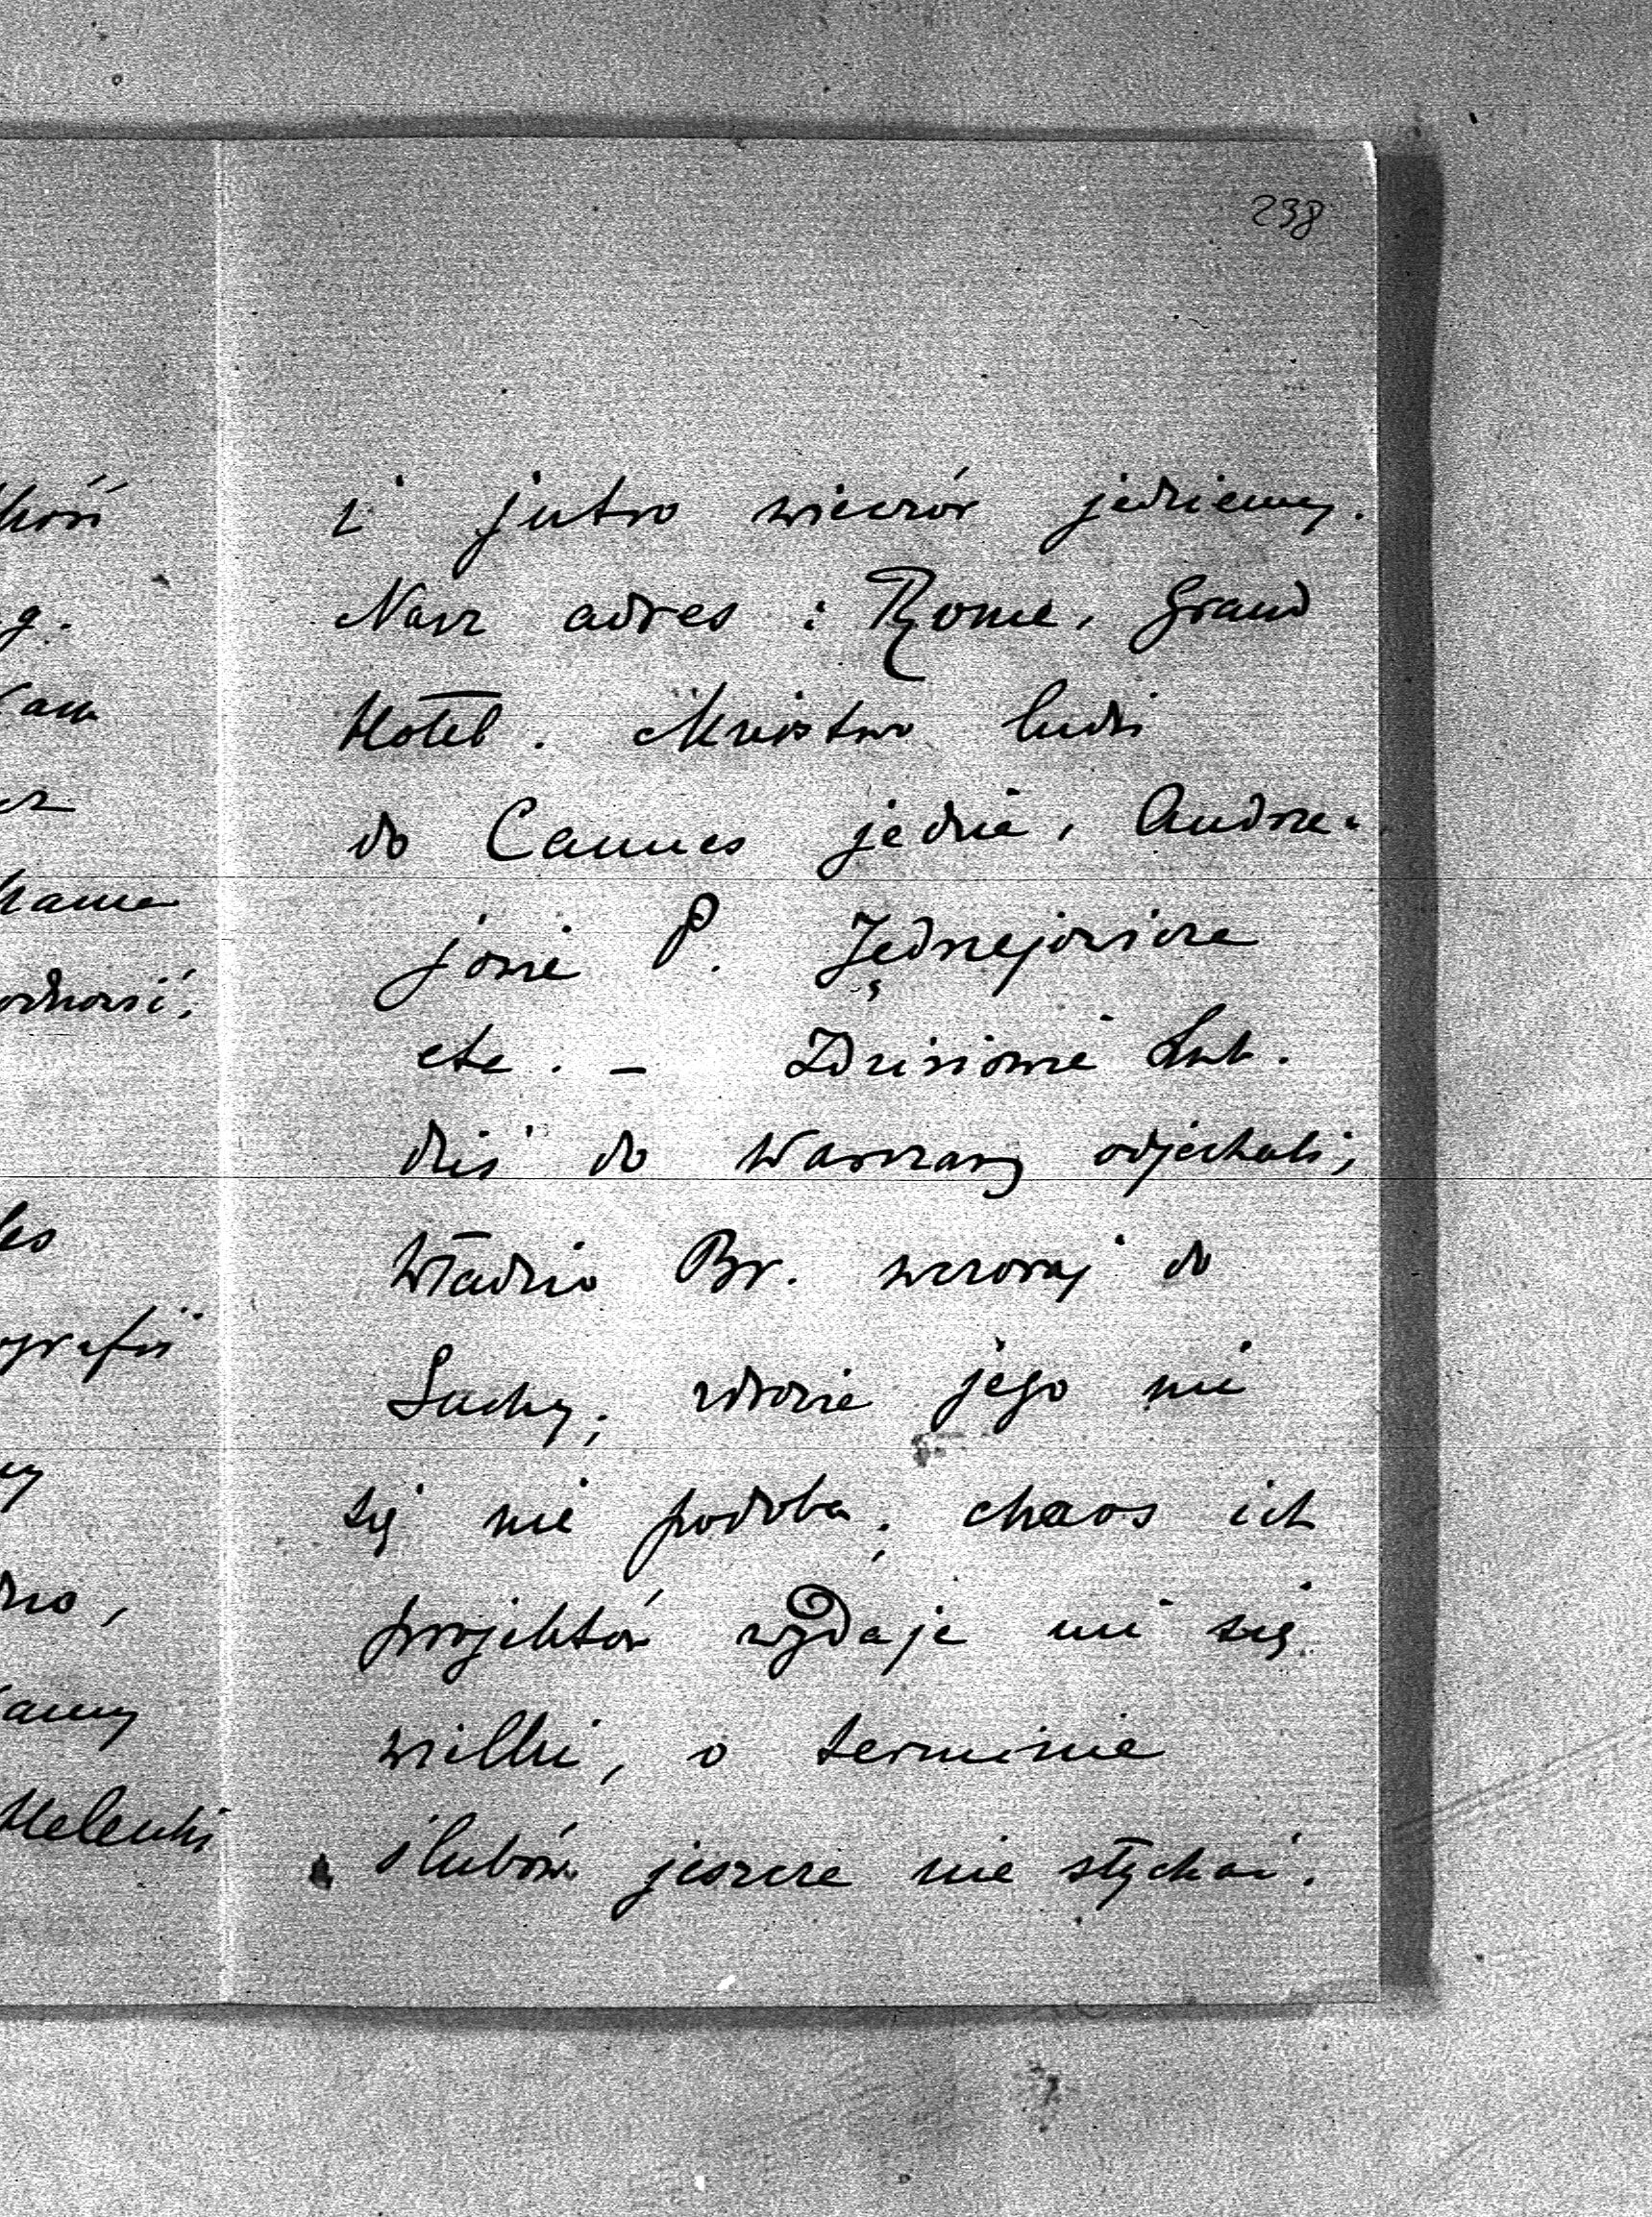 238
i jutro wieczór jedziemy.
Nasz adres : Rome, Grand
Hotel. Mnóstwo ludzi
do Cannes jedzie, Andrze-
jowie P. Jędrzejowicze
etc. – Zdzisiowie Lub.
dziś do Warszawy odjechali;
Władzio Br. wczoraj do
Suchy; zdrowie jego mi
się nie podoba; chaos ich
projektów wydaje mi się
wielki, o terminie
ślubów jeszcze nie słychać.
g.
Mamie
ografii
Helenki